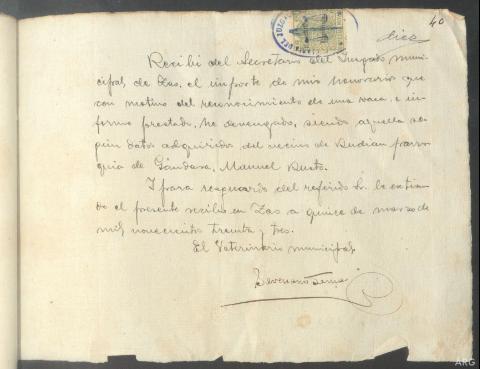 40
diez
Recibí del Secretario del Juzgado muni-
cipal de Zas, el importe de mis honorarios que
con motivo del reconocimiento de una vaca, e in-
forme prestado, he devengado, siendo aquella se-
gún datos adquiridos del vecino de Budian, parro-
quia de Gándara, Manuel
I para resguardo del referido Sr. le extien-
do el presente recibo en Zas a quince de marzo de
mil novecientos treinta y tres.
El Veterinario municipal,
ARG